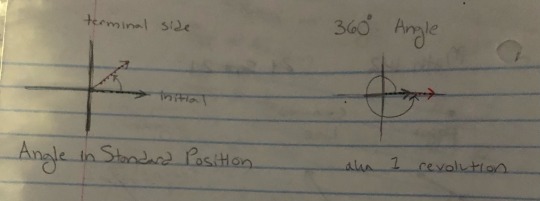 terminal side
360° Angle
initial
Angle in Standard Position
aka 1 revolution